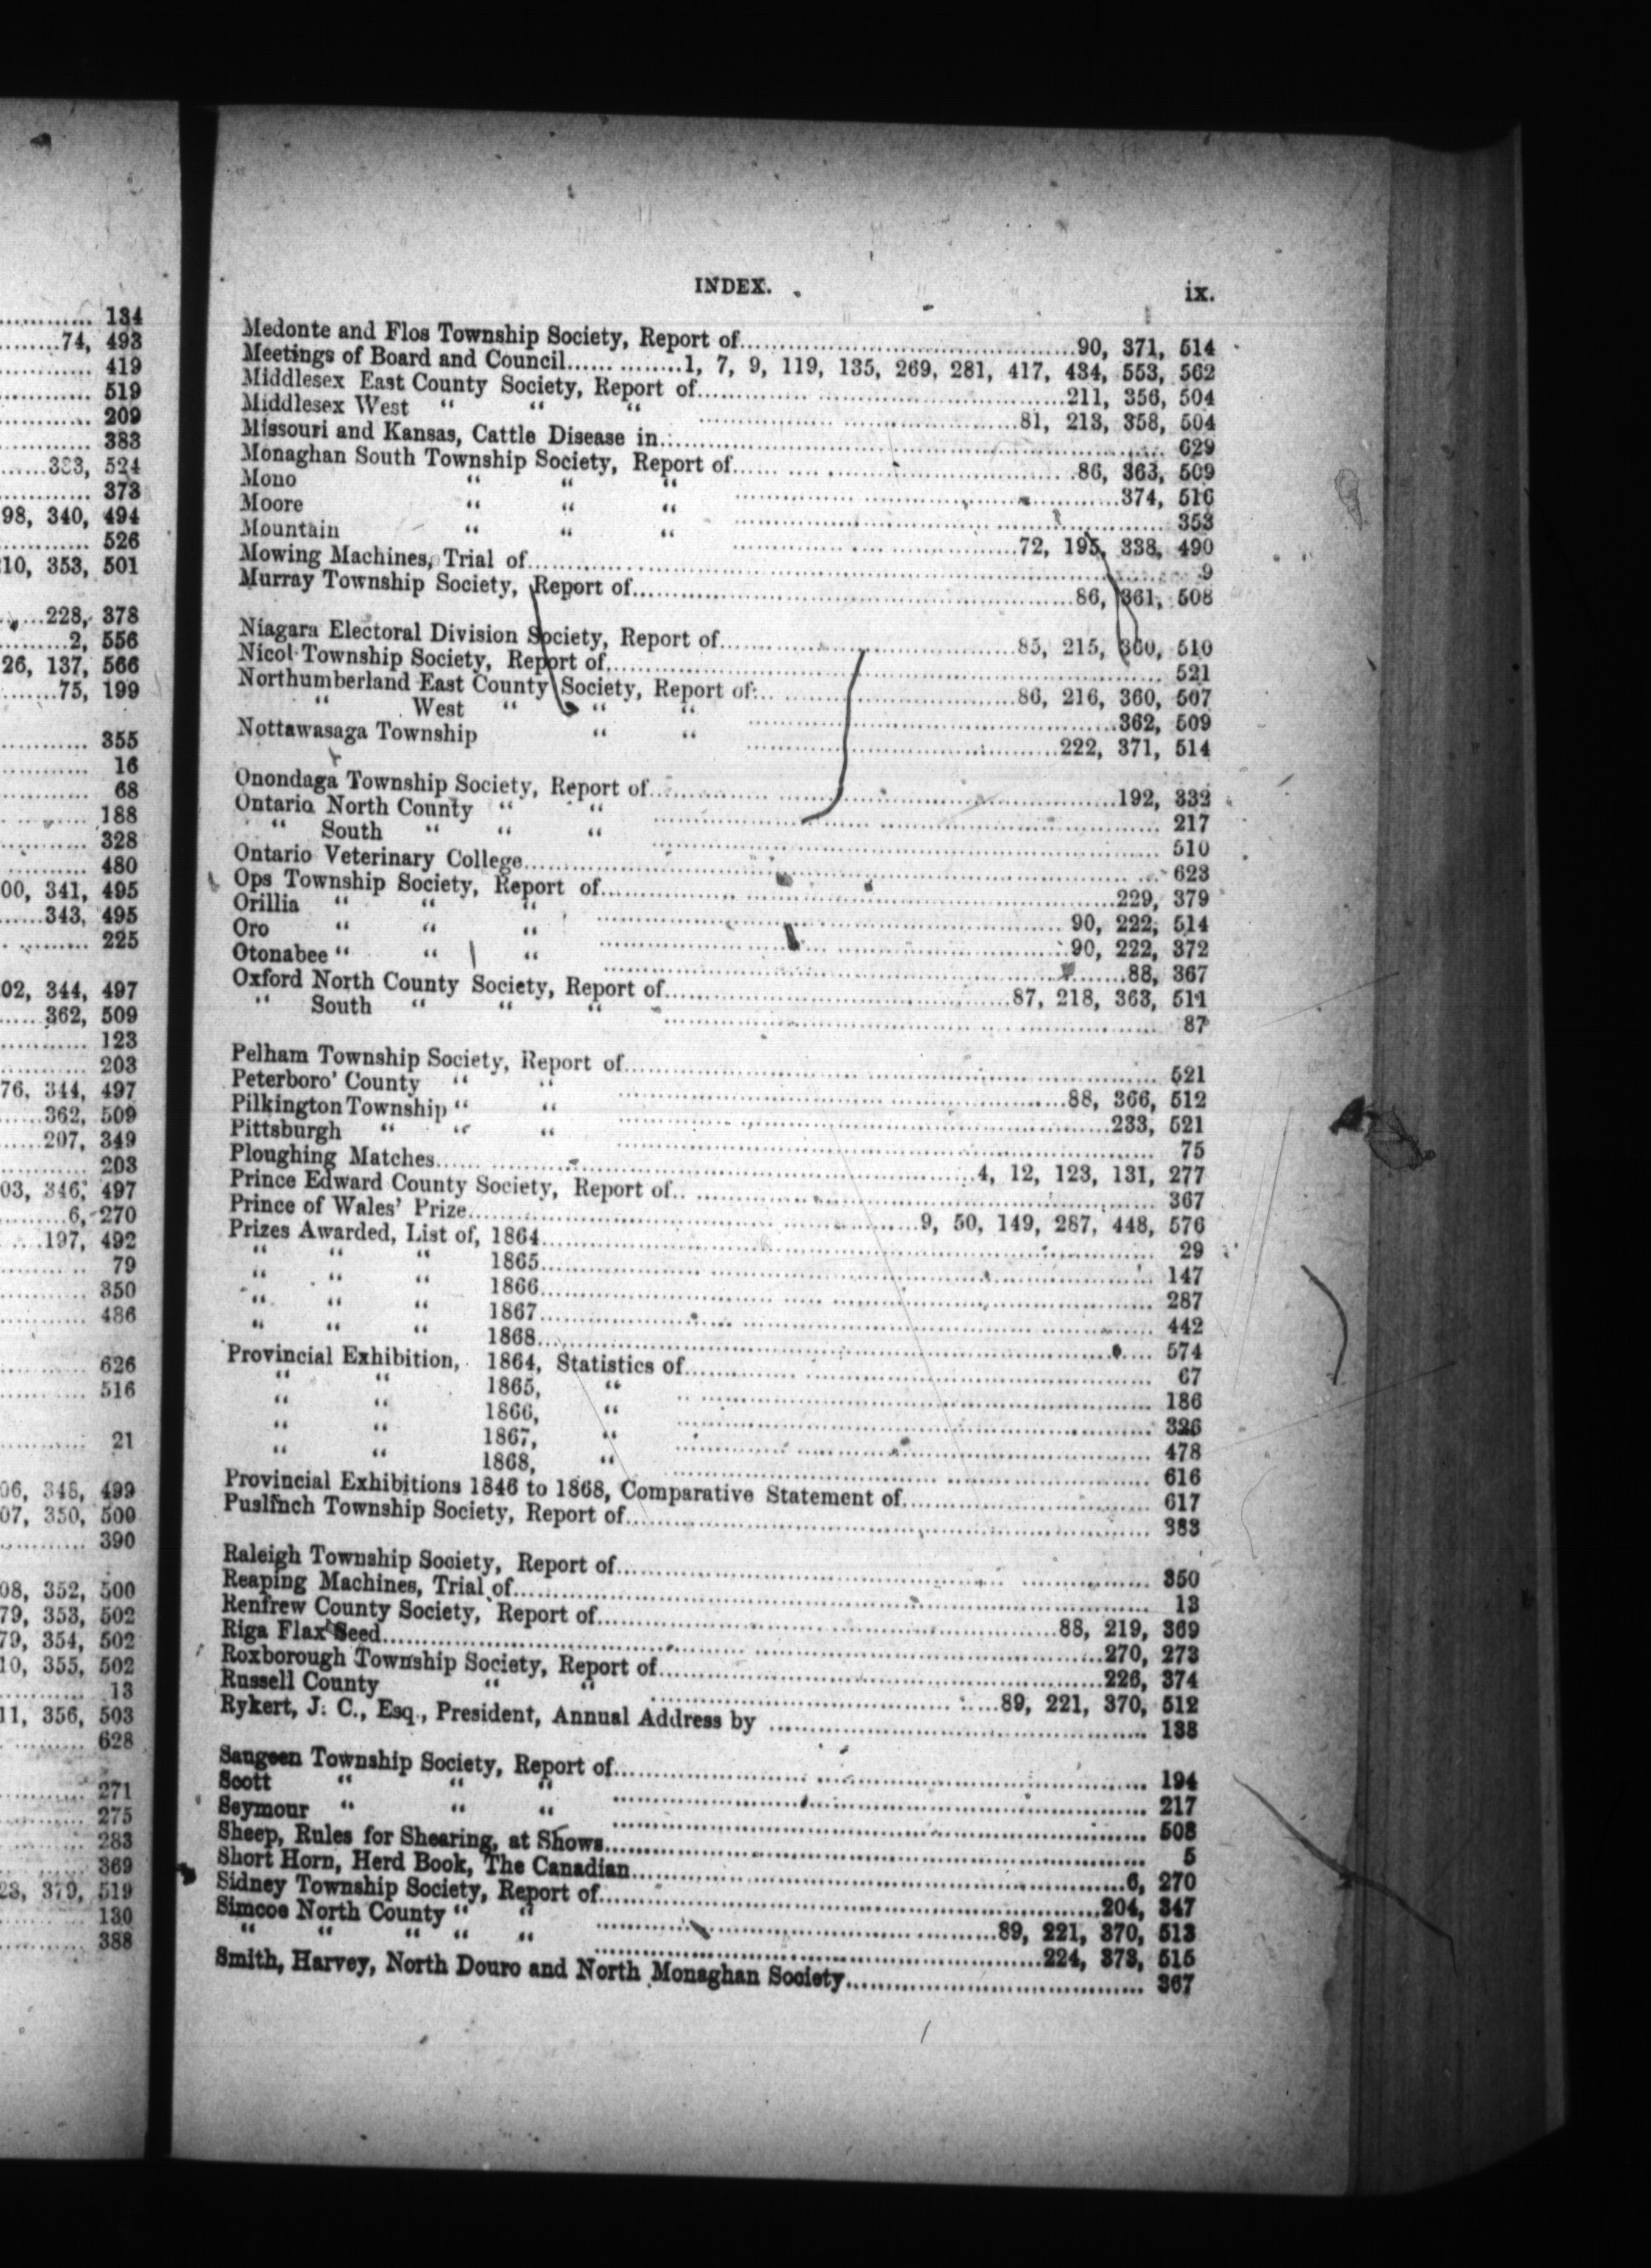 134
74, 493
419
519
209
383
383, 524
373
98, 340, 494
526
10, 353, 501
228, 378
2, 556
26, 137, 566
75, 199
355
16
68
188
328
480
00, 341, 495
343, 495
225
02, 344, 497
362, 509
123
203
76, 344, 497
362, 509
207, 349
203
03, 346, 497
6, 270
197, 492
79
350
486
626
516
21
06, 348, 499
07, 350, 500
390
08, 352, 500
79, 353, 502
79, 354, 502
10, 355, 502
13
11, 356, 503
628
271
275
283
369
23, 379, 519
130
388
INDEX. ix.
Medonte and Flos Township Society, Report of.....90, 371, 514
Meetings of Board and Council.....1, 7, 9, 119, 135, 269, 281, 417, 434, 553, 562
Middlesex East County Society, Report of.....211, 356, 504
Middlesex West " " " .....81, 213, 358, 504
Missouri and Kansas, Cattle Disease in..... 629
Monaghan South Township Society, Report of.....86, 363, 509
Mono " " " .....374, 516
Moore " " " ..... 353
Mountain " " " .....72, 195, 338, 490
Mowing Machines, Trial of..... 9
Murray Township Society, Report of.....86, 361, 508
Niagara Electoral Division Society, Report of.....85, 215, 360, 510
Nicol Township Society, Report of..... 521
Northumberland East County Society, Report of.....86, 216, 360, 507
" West " " " .....362, 509
Nottawasaga Township " " .....222, 371, 514
Onondaga Township Society, Report of.....192, 332
Ontario North County " " ..... 217
" South " " " ..... 510
Ontario Veterinary College..... 623
Ops Township Society, Report of.....229, 379
Orillia " " " .....90, 222, 514
Oro " " " .....90, 222, 372
Otonabee " " " .....88, 367
Oxford North County Society, Report of.....87, 218, 363, 511
" South " " " ..... 87
Pelham Township Society, Report of..... 521
Peterboro' County " " .....88, 366, 512
Pilkington Township " " .....233, 521
Pittsburgh " " " ..... 75
Ploughing Matches.....4, 12, 123, 131, 277
Prince Edward County Society, Report of..... 367
Prince of Wales' Prize.....9, 50, 149, 287, 448, 576
Prizes Awarded, List of, 1864..... 29
" " " 1865..... 147
" " " 1866..... 287
" " " 1867..... 442
" " " 1868..... 574
Provincial Exhibition, 1864, Statistics of..... 67
" " 1865, " ..... 186
" " 1866, " ..... 326
" " 1867, " ..... 478
" " 1868, " ..... 616
Provincial Exhibitions 1846 to 1868, Comparative Statement of..... 617
Puslinch Township Society, Report of..... 383
Raleigh Township Society, Report of..... 350
Reaping Machines, Trial of..... 13
Renfrew County Society, Report of.....88, 219, 369
Riga Flax Seed.....270, 273
Roxborough Township Society, Report of.....226, 374
Russell County " " .....89, 221, 370, 512
Rykert, J. C., Esq., President, Annual Address by ..... 138
Saugeen Township Society, Report of..... 194
Scott " " " ..... 217
Seymour " " " ..... 508
Sheep, Rules for Shearing, at Shows..... 5
Short Horn, Herd Book, The Canadian.....6, 270
Sidney Township Society, Report of.....204, 347
Simcoe North County " " .....89, 221, 370, 513
" " " " " .....224, 373, 515
Smith, Harvey, North Douro and North Monaghan Society..... 367